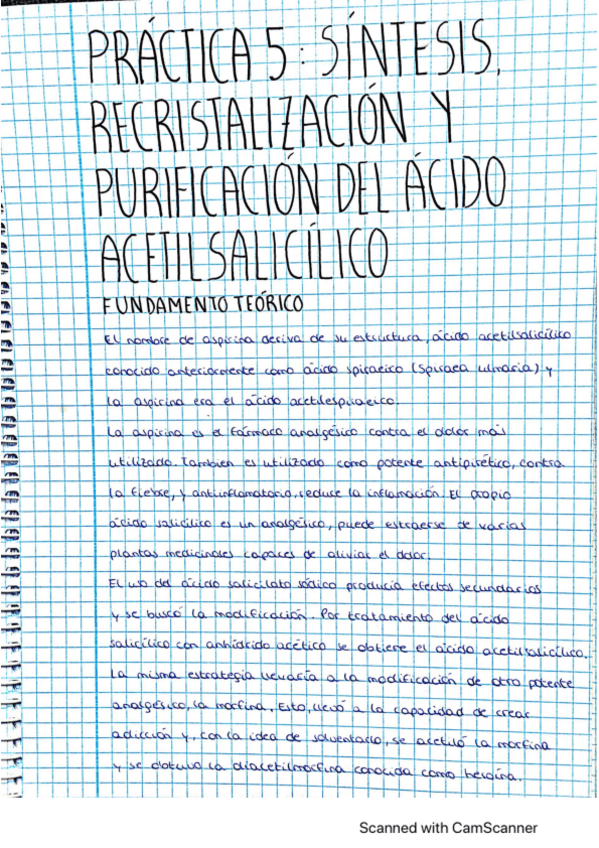 PRÁCTICA 5: SÍNTESIS,
RECRISTALIZACIÓN Y
PURIFICACIÓN DEL ÁCIDO
ACETILSALICÍLICO
FUNDAMENTO TEÓRICO
El nombre de aspirina deriva de su estructura, ácido acetilsalicílico
conocido anteriormente como ácido spiraeico (spiraea ulmaria) y
la aspirina era el ácido acetilespiraeico.
La aspirina es el fármaco analgésico contra el dolor más
utilizado. Tambien es utilizado como potente antipirético, contra
la fiebre, y antiinflamatorio, reduce la inflamación. El propio
ácido salicílico es un analgésico, puede estraerse de varias
plantas medicinales capaces de aliviar el dolor.
El uso del ácido salicilato sódico producía efectos secundarios
y se buscó la modificación. Por tratamiento del ácido
salicílico con anhídrido acético se obtiene el ácido acetilsalicílico.
La misma estrategia llevaría a la modificación de otro potente
analgésico, la morfina. Esto, llevó a la capacidad de crear
adicción y, con la idea de solventarlo, se acetiló la morfina
y se obtuvo la diacetilmorfina conocida como heroína.
Scanned with CamScanner